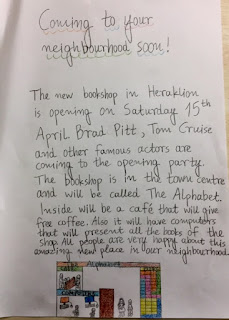 Coming to your
neighbourhood soon!
The new bookshop in Heraklion
is opening on Saturday 15th
April Brad Pitt, Tom Cruise
and other famous actors are
coming to the opening party.
The bookshop is in the town centre
and will be called The Alphabet.
Inside will be a café that will give
free coffee. Also it will have computers
that will present all the books of the
shop. All people are very happy about this
amazing new place in our neighbourhood.
The Alphabet
CAFE
COMPUTERS